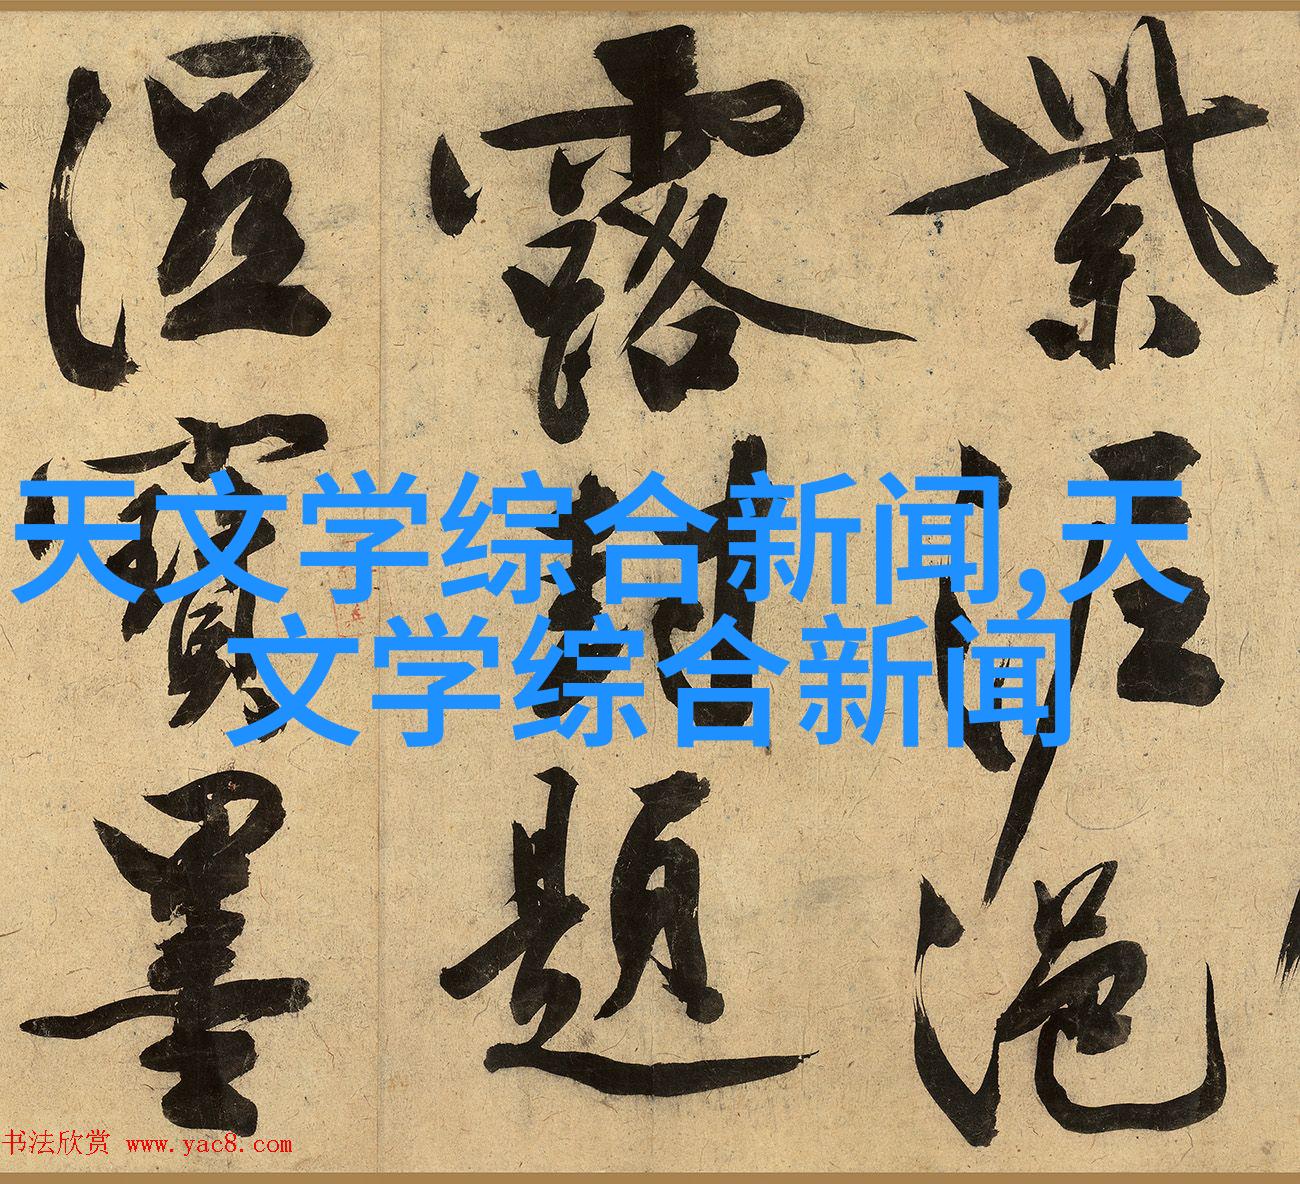 紫泥浥
露封題
濕寶墨
天文学综合新闻,天
文学综合新闻
书法欣赏 www.yac8.com